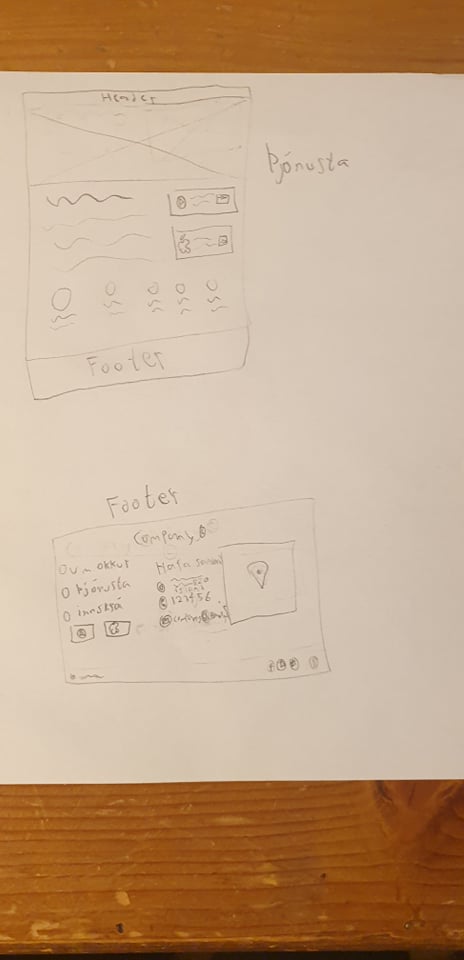 Header
Þjónusta
Footer
Footer
Company
um okkur
Þjónusta
innskrá
Hafa
123456